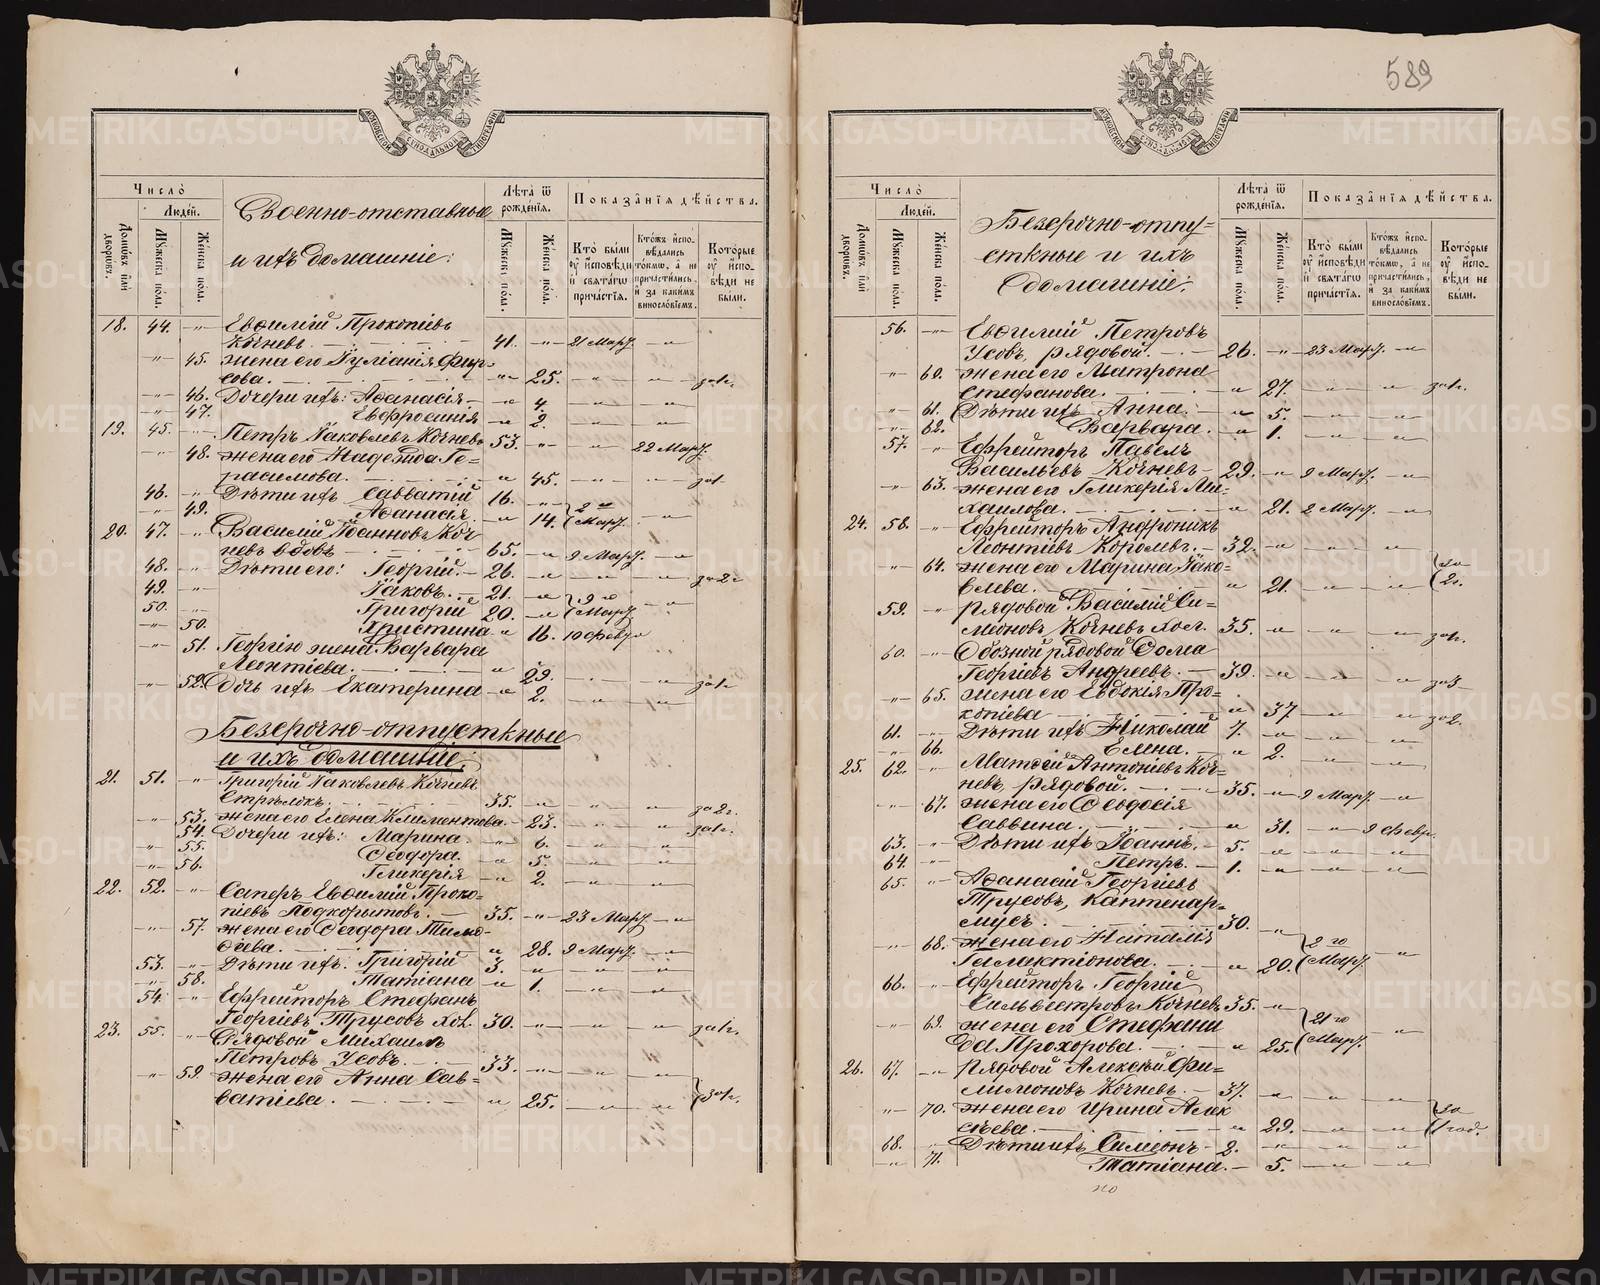 589
Число̀
Людéй.
Домѡ́въ и҆лѝ дворѡ́въ.
Мꙋ́жеска по́ла.
Же́нска по́ла.
Военно-отставные
и ихъ домашніе:
Лѣта̀ ѿ рожде́нїѧ.
Мꙋ́жеска по́ла.
Же́нска по́ла.
Показа̑нїѧ дѣ́йства.
Кто̀ бы́ли ᲂу҆ и҆сповѣ́ди и҆ свѧта́гѡ прича́стїѧ.
Кто́жъ и҆спо-вѣ́дались то́кмѡ, а҆ не причасти́лись, и҆ за каки́мъ винослóвїемъ.
Кото́рые ᲂу҆ и҆спо-вѣ́ди не бы́ли.
18. 44. -"- Евѳимій Прокопіевъ
Кочневъ. 41. -"- 21 Мар. -"-
-"- 45. жена его Іуліанія Фир-
сова. -"- 25. -"- -"- за 1г.
-"- 46. Дочери ихъ: Аѳанасія -"- 4. -"- -"-
-"- 47. Евфросинія -"- 2. -"- -"-
19. 45. -"- Петръ Іаковлевъ Кочневъ 53. -"- -"- 22 Мар.
-"- 48. жена его Надежда Ге-
расимова. -"- 45. -"- -"- за 1
46. -"- Дѣти ихъ Савватій 16. -"- 2 го
-"- 49. Аѳанасія. -"- 14. Мар. -"-
20. 47. -"- Василій Іоанновъ Коч-
невъ вдовъ 65. -"- 9 Мар. -"-
48. -"- Дѣти его: Георгій. 26. -"- -"- -"- за 2г
49. -"- Іаковъ. 21. -"- 9 го
50. -"- Григорій 20. -"- Мар. -"-
-"- 50. Христина -"- 16. 10 февр.
-"- 51. Георгію жена Варвара
Леонтіева. -"- 29. -"- -"- за 1г
-"- 52. Дочь ихъ Екатерина -"- 2. -"- -"-
Безсрочно-отпускные
и ихъ домашніе:
21. 51. -"- Григорій Іаковлевъ Кочневъ
Стрѣлокъ. 35. -"- -"- -"- за 2г.
-"- 53. жена его Елена Климентова. 23. -"- -"- за 1г.
-"- 54. Дочери ихъ: Марина. -"- 6. -"- -"-
-"- 55. Ѳеодора. -"- 5. -"- -"-
-"- 56. Гликерія -"- 2. -"- -"-
22. 52. -"- Саперъ Евѳимій Проко-
піевъ Подкорытовъ. 35. -"- 23 Мар. -"-
-"- 57. жена его Ѳеодора Тимо-
ѳеева. -"- 28. 9 Мар. -"-
53. -"- Дѣти ихъ. Григорій 3. -"- -"- -"-
-"- 58. Татіана -"- 1. -"- -"-
54. -"- Ефрейторъ Стефанъ
Георгіевъ Трусовъ хол. 30. -"- -"- -"- за 1г.
23. 55. -"- Рядовой Михаилъ
Петровъ Усовъ. 33. -"- -"- -"-
-"- 59. жена его Анна Сав-
ватіева. -"- 25. -"- -"- за 1г.
Число̀
Людéй.
Домѡ́въ и҆лѝ дворѡ́въ.
Мꙋ́жеска по́ла.
Же́нска по́ла.
Безсрочно-отпу=
скные и ихъ
домашніе:
Лѣта̀ ѿ рожде́нїѧ.
Мꙋ́жеска по́ла.
Же́нска по́ла.
Показа̑нїѧ дѣ́йства.
Кто̀ бы́ли ᲂу҆ и҆сповѣ́ди и҆ свѧта́гѡ прича́стїѧ.
Кто́жъ и҆спо-вѣ́дались то́кмѡ, а҆ не причасти́лись, и҆ за каки́мъ винослóвїемъ.
Кото́рые ᲂу҆ и҆спо-вѣ́ди не бы́ли.
56. -"- Евѳимій Петровъ
Усовъ, рядовой. 26. -"- 23 Мар. -"-
-"- 60. жена его Матрона
Стефанова. -"- 27. -"- -"- за 1г.
-"- 61. Дѣти ихъ Анна. -"- 5. -"- -"-
-"- 62. Варвара. -"- 1. -"- -"-
57. -"- Ефрейторъ Павелъ
Васильевъ Кочневъ 29. -"- 9 Мар. -"-
-"- 63. жена его Гликерія Ми-
хаилова. -"- 21. 2 Мар. -"-
24. 58. -"- Ефрейторъ Андроникъ
Леонтіевъ Королевъ. 32. -"- -"- -"-
-"- 64. жена его Марина Іако-
влева. -"- 21. -"- -"- за 2г.
59. -"- рядовой Василій Си-
меоновъ Кочневъ хол. 35. -"- -"- -"- за 1г.
60. -"- Обозной рядовой Ѳома
Георгіевъ Андреевъ. 39. -"- -"- -"- за 3
-"- 65. жена его Евдокія Про-
копіева -"- 37 -"- -"- за 2.
61. -"- Дѣти ихъ Николай 7. -"- -"- -"-
-"- 66. Елена. -"- 2. -"- -"-
25. 62. -"- Матѳій Антоніевъ Коч-
невъ, рядовой. 35. -"- 9 Мар. -"-
-"- 67. жена его Ѳеодосія
Саввина. -"- 31. -"- 9 февр.
63. -"- Дѣти ихъ Іоаннъ. 5. -"- -"- -"-
64. -"- Петръ. 1. -"- -"- -"-
65. -"- Аѳанасій Георгіевъ
Трусовъ, каптенар-
мусъ. 30. -"-
-"- 68. жена его Наталія 2 го
Галактіонова. -"- 20. Мар. -"-
66. -"- Ефрейторъ Георгій
Сильвестровъ Кочневъ 35. -"-
-"- 69. жена его Стефани 21 го
да Прохорова. -"- 25. Мар. -"-
26. 67. -"- Рядовой Алексѣй Фи-
лимоновъ Кочневъ. 37. -"- -"- -"-
-"- 70. жена его Ирина Алек
сѣева. -"- 29. -"- -"- за 1 год.
68. -"- Дѣти ихъ Симеонъ 2. -"- -"- -"-
-"- 71. Татіана. 5. -"- -"-